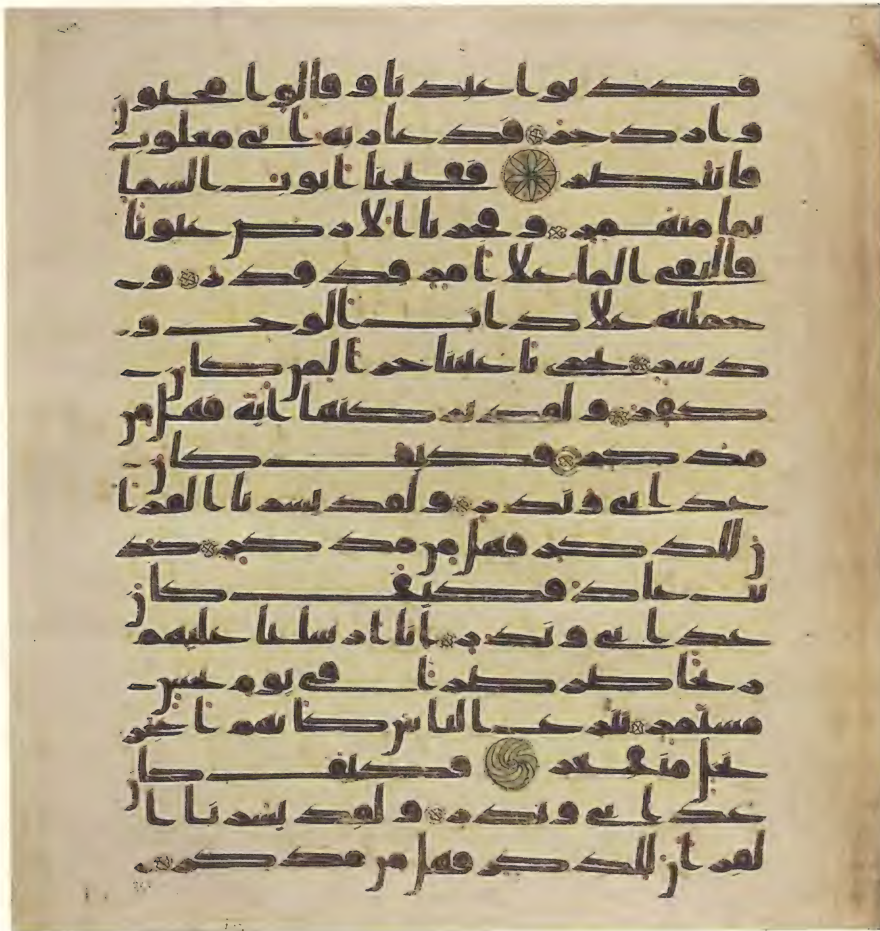 فكذبوا عبدنا وقالوا مجنون
وازدجر فدعا ربه اني مغلوب
فانتصر ففتحنا ابوب السما
بما منهمر وفجرنا الارض عيونا
فالتقى الما علا امر قد قدر و
حملنه علا ذات الوح و
دسر تجري باعيننا جزا لمن كان
كفر ولقد تركنها اية فهل من
مدكر فكيف كان
عذابي ونذر ولقد يسرنا القرا
ن للذكر فهل من مدكر كذ
بت عاد فكيف كان
عذابي ونذر انا ارسلنا عليهم
ريحا صرصرا في يوم نحس
مستمر تنزع الناس كانهم اعجز
نخل منقعر فكيف كان
عذابي ونذر ولقد يسرنا ا
لقران للذكر فهل من مدكر